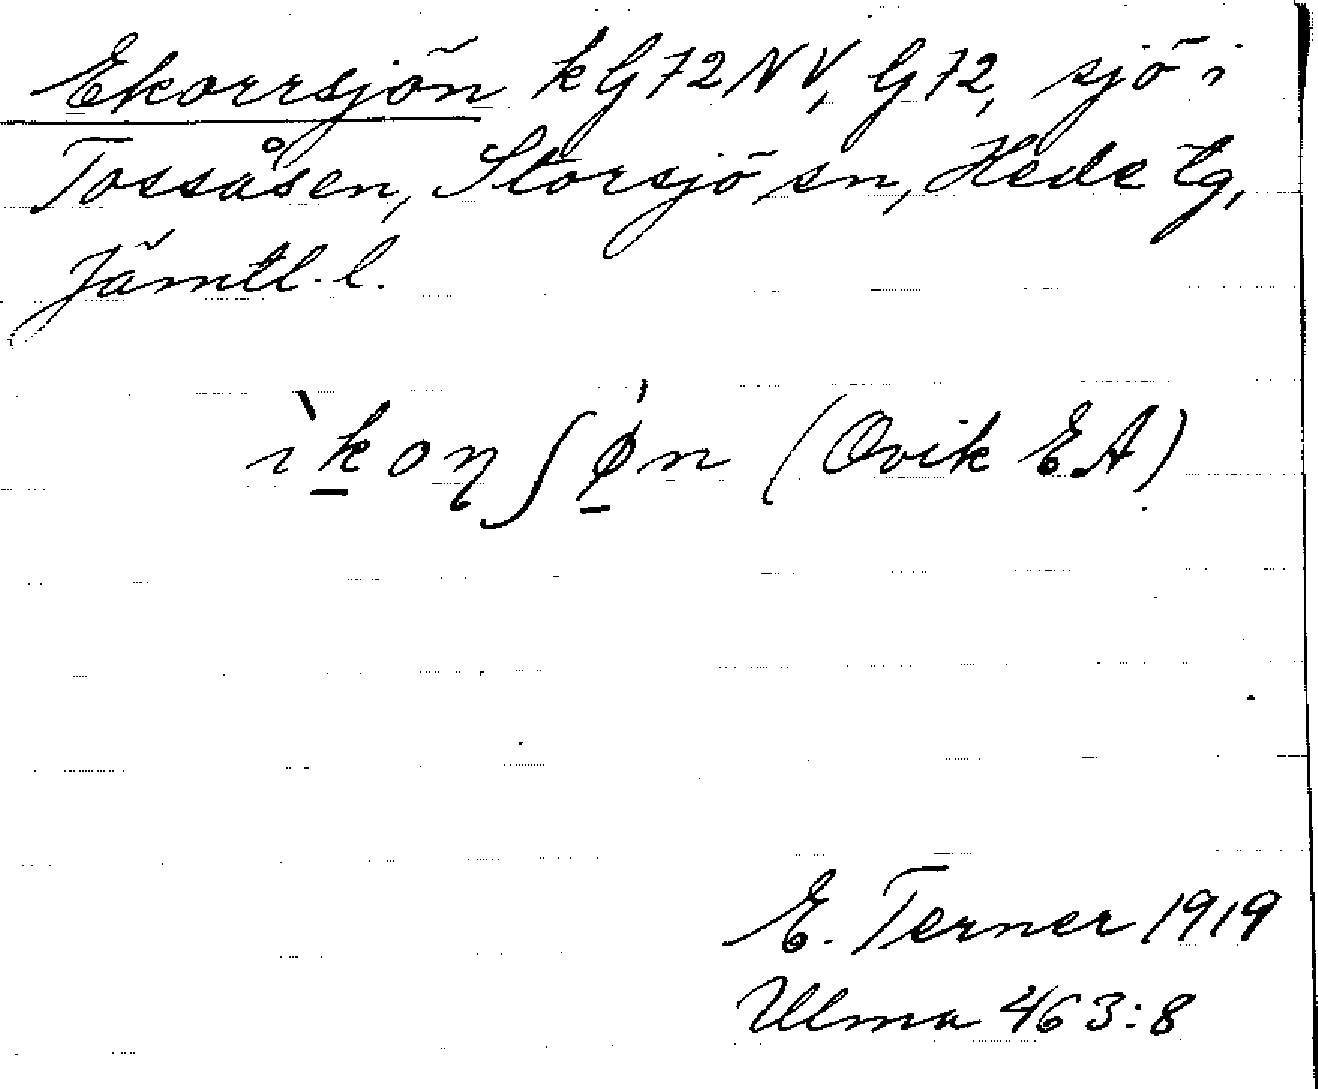 Ekorrsjön kG72NV, G72, sjö i
Tossåsen, Storsjö sn, Hede tg,
Jämtl. l.
ı̀ḵoŋʃǿ̱n (Ovik EA)
E. Terner 1919
Ulma 463:8